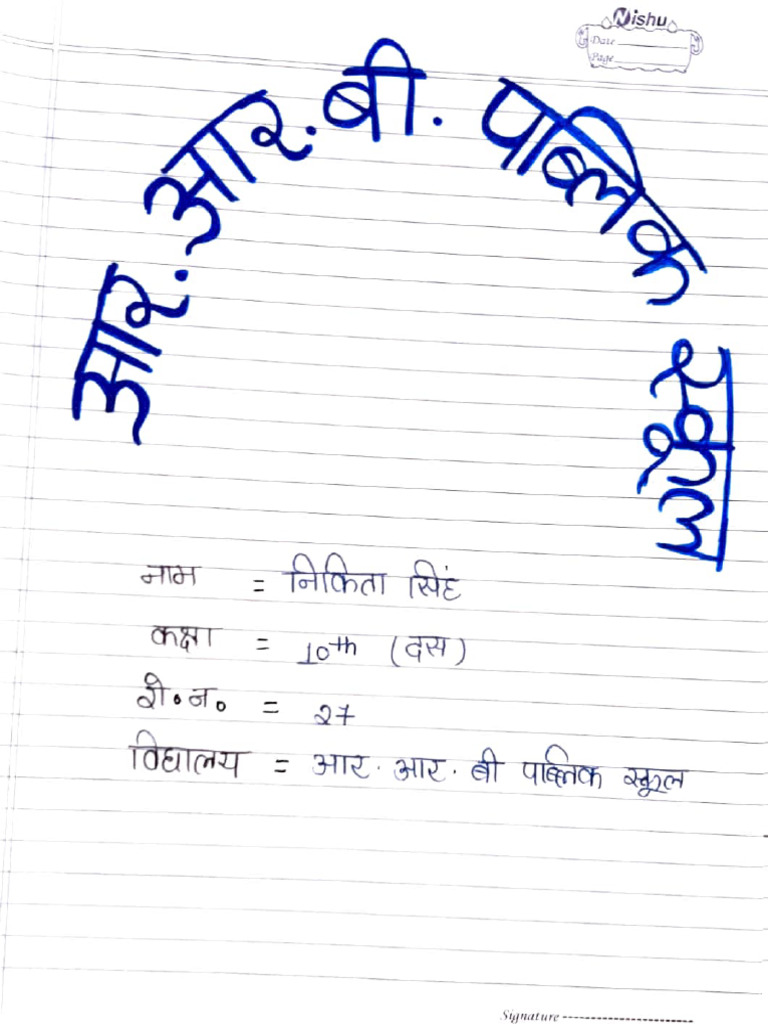 Nishu
Date
Page
आर. आर. बी. पब्लिक स्कूल
नाम = निकिता सिहं
कक्षा = 10th (दस)
रो॰ न॰ = 27
विद्यालय = आर. आर. बी पब्लिक स्कूल
Signature